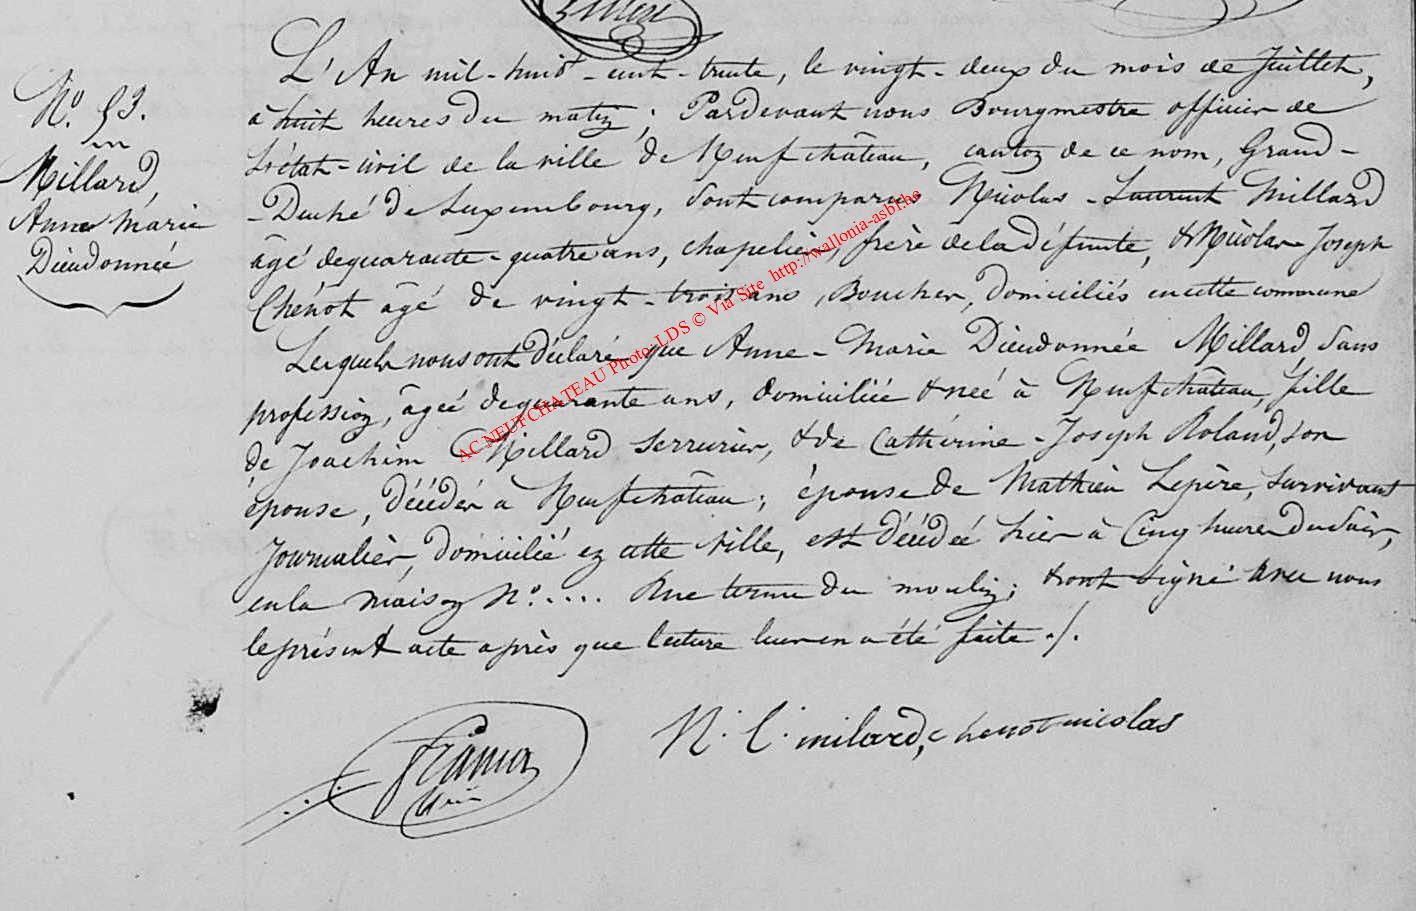 N.° 53.
Millard,
Anne Marie
Dieudonnée
L'An mil-huit-cent-trente, le vingt-deux du mois de Juillet,
à huit heures du matin; Pardevant nous Bourgmestre officier de
l'état-civil de la ville de Neufchâteau, canton de ce nom, Grand-
-Duché de Luxembourg, sont comparus Nicolas-Laurent Millard
âgé de quarante-quatre ans, chapelier, frère de la défunte, & Nicolas Joseph
Chénot âgé de vingt-trois ans, Boucher, domiciliés en cette commune
Lesquels nous ont déclaré que Anne-Marie Dieudonnée Millard, sans
profession, âgée de quarante ans, domiciliée & née à Neufchâteau, fille
de Joachim Millard serrurier, & de Catherine-Joseph Roland, son
épouse, décédés à Neufchâteau; épouse de Mathieu Lepère, survivant
Journalier, domicilié en cette ville, est décédée hier à Cinq heures du Soir,
en la maison N.° .... Rue terme du moulin; & ont signé avec nous
le présent acte après que lecture leur en a été faite ./.
N. L. milard, chenot nicolas
AC NEUFCHATEAU Photo LDS © Via Site http://wallonia-asbl.be